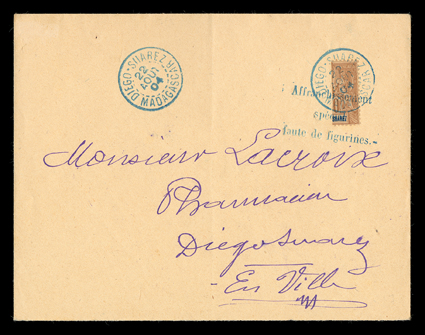 DIEGO-SUAREZ
22
AOUT
04
MADAGASCAR
DIEGO-SUAREZ
22
MADAGASCAR
Affranchissement
faute de figurines.-
SUAREZ
Monsieur Lacroix
Pharmacien
Diego Suarez
En Ville